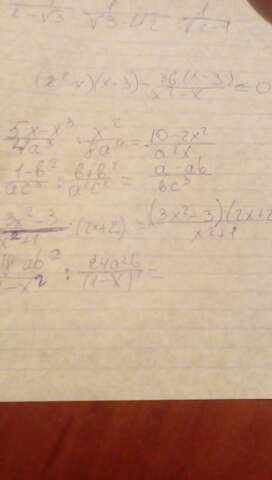 1/(2-√3) 1/(√3-√2) 1/(√2-1)
(x²-x)(x-3) - 36(x-3)/(x²-x) ≤ 0
(5x-x³)/(4a³) : x²/(8a⁴) = (10-2x²)/(a²x)
(1-b²)/(ac³) : (b+b²)/(a²c²) = (a-ab)/(bc³)
(3x²-3)/(x²+1) : (2x+2) = (3x²-3)(2x+2)/(x²+1)
ab²/(1-x²) : 24a²b/(1-x)² =